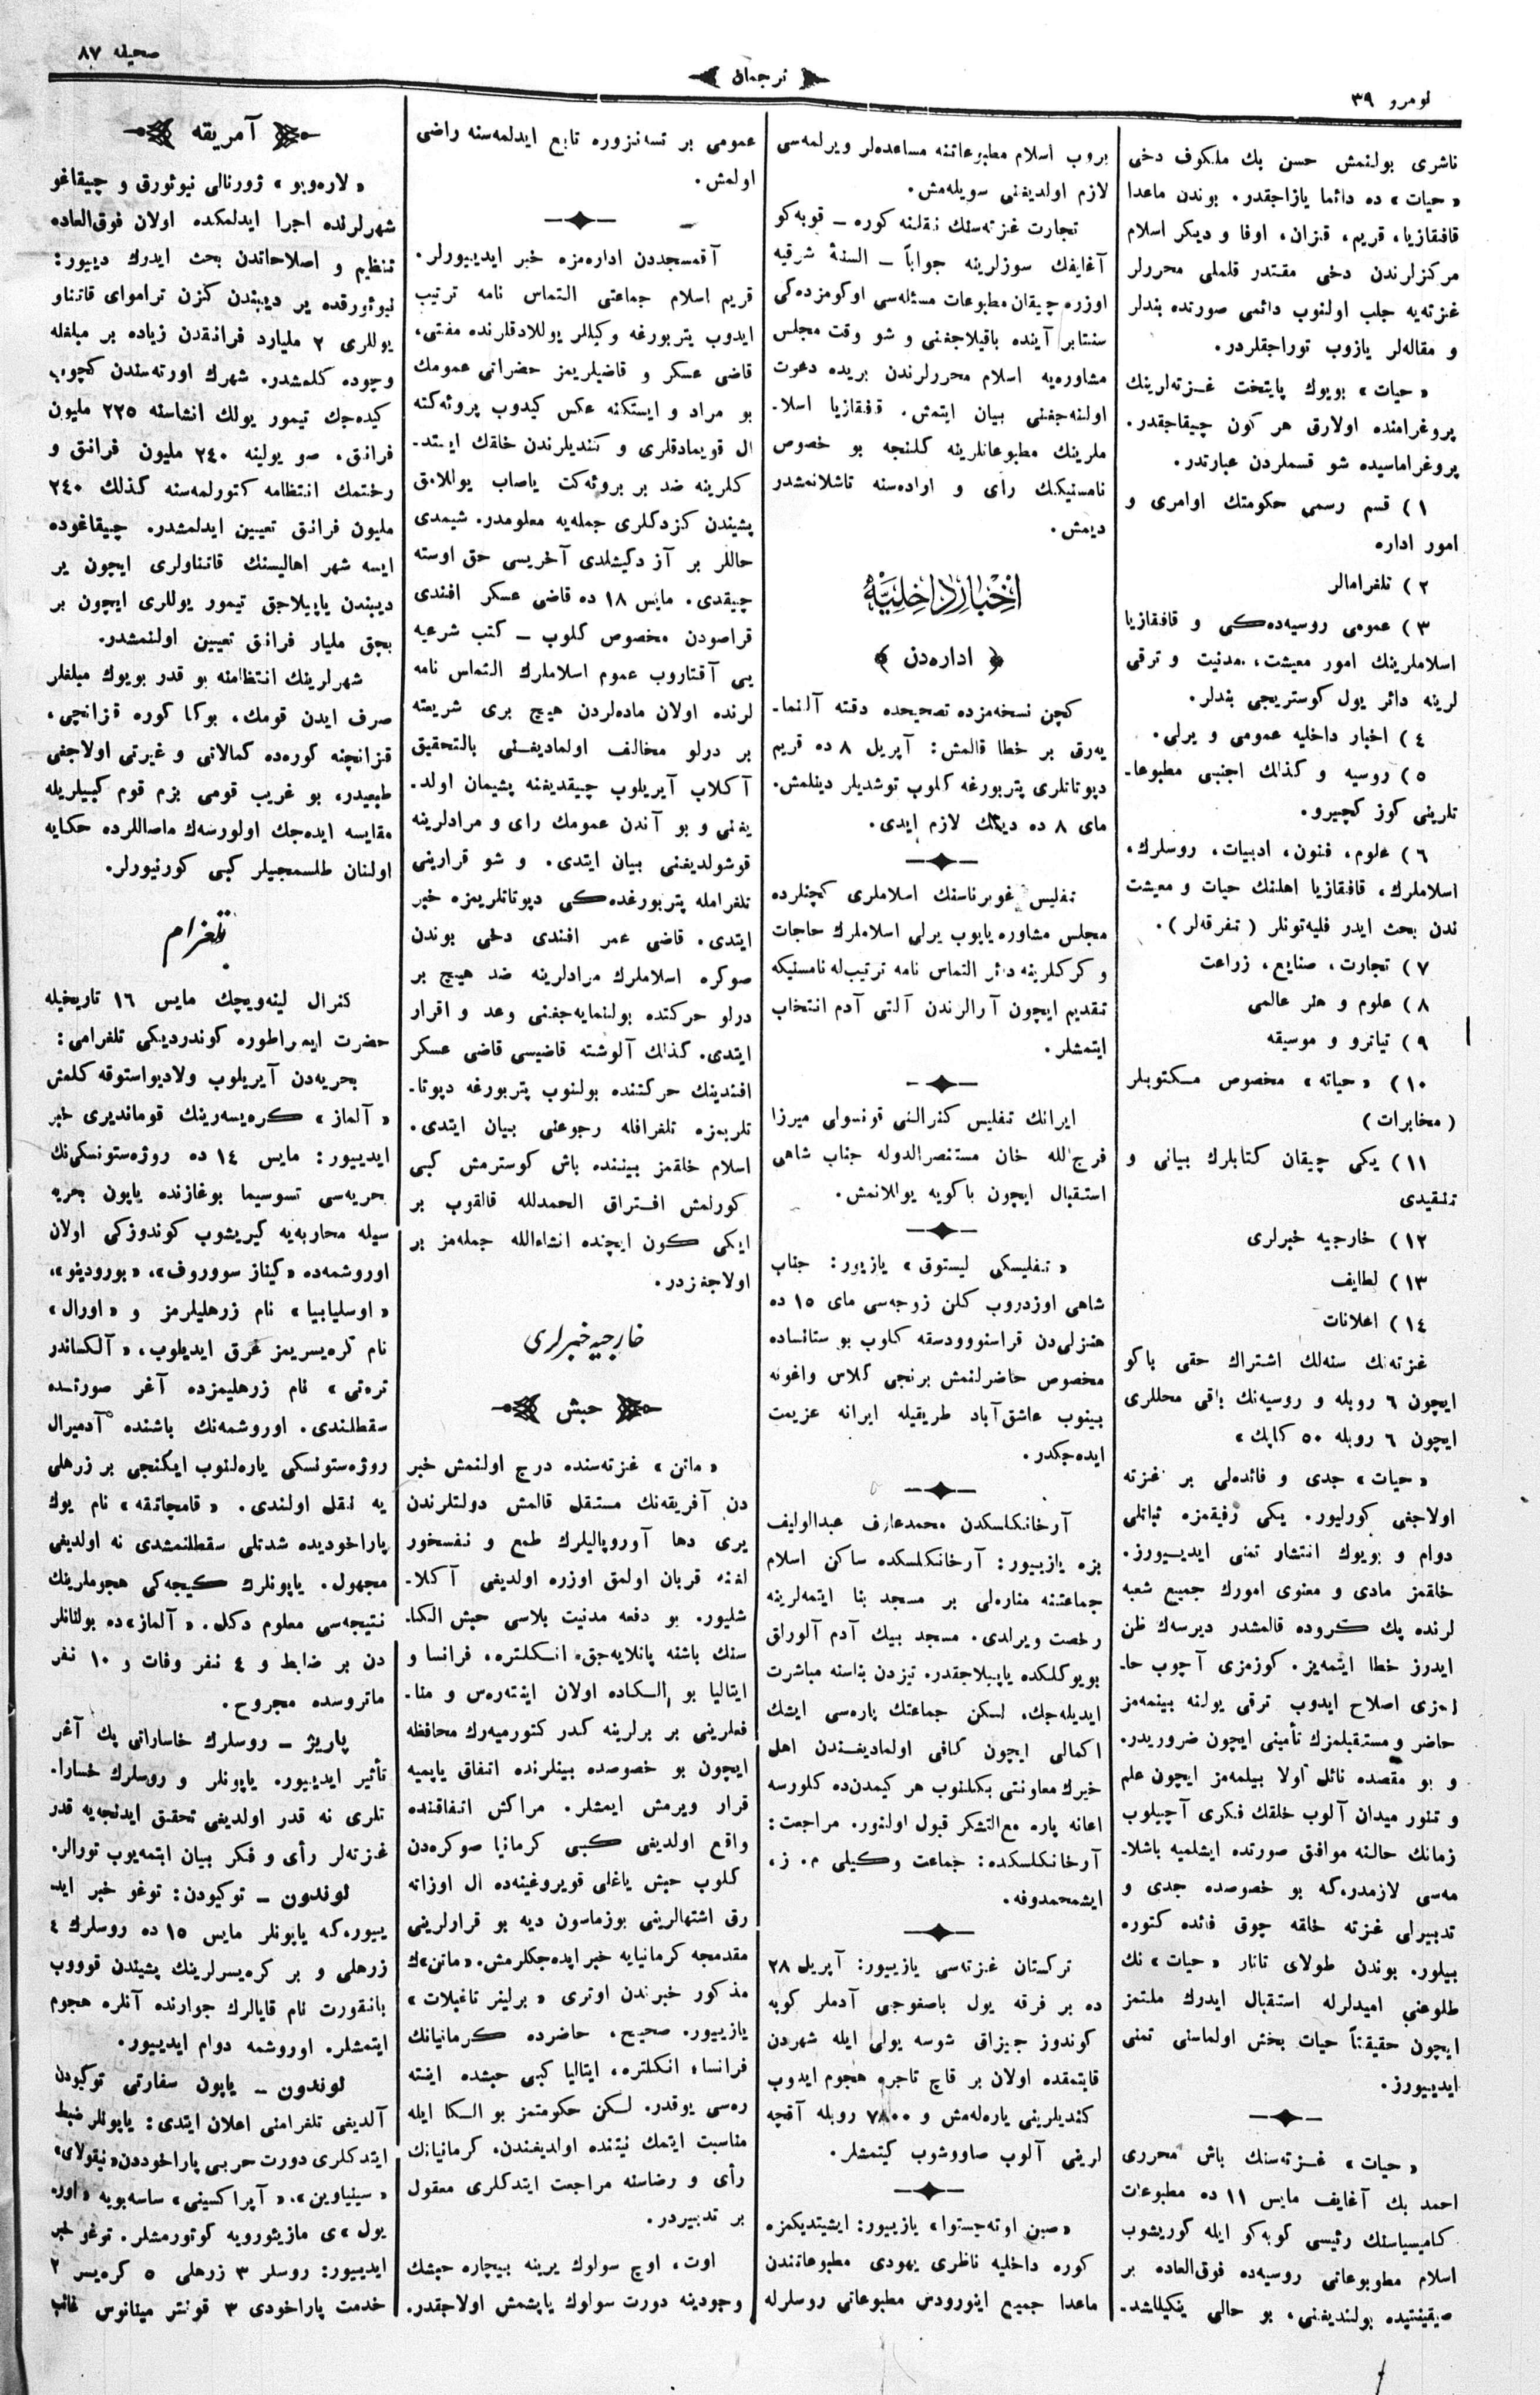 نومرو ٣٩
ترجمان
صحیفه ٨٧
ناشری بولنمش حسن بك ملكوف دخی
« حیات » ده دائما یازاجقدر. بوندن ماعدا
قافقازیا، قریم، قزان، اوفا و دیكر اسلام
مركزلرندن دخی مقتدر قلملی محررلر
غزته‌یه جلب اولنوب دائمی صورتده بندلر
و مقاله‌لر یازوب توراجقلردر.
« حیات » بویوك پایتخت غـزته‌لرینك
پروغرامنده اولارق هر كون چیقاجقدر.
پروغراماسیده شو قسملردن عبارتدر.
١) قسم رسمی حكومتك اوامری و
امور اداره
٢) تلغرامالر
٣) عمومی روسیه‌ده‌كی و قافقازیا
اسلاملرینك امور معیشت، مدنیت و ترقی
لرینه دائر یول كوستریجی بندلر.
٤) اخبار داخلیه عمومی و یرلی.
٥) روسیه و كذلك اجنبی مطبوعا-
تلرینی كوز كچیرو.
٦) علوم، فنون، ادبیات، روسلرك،
اسلاملرك، قافقازیا اهلنك حیات و معیشت
ندن بحث ایدر فلیه‌تونلر ( تفرقه‌لر ).
٧) تجارت، صنایع، زراعت
٨) علوم و هنر عالمی
٩) تیاترو و موسیقه
١٠) « حیاته » مخصوص مـكتوبلر
( مخابرات )
١١) یكی چیقان كتابلرك بیانی و
تنقیدی
١٢) خارجیه خبرلری
١٣) لطایف
١٤) اعلانات
غزته‌نك سنه‌لك اشتراك حقی باكو
ایچون ٦ روبله و روسیه‌نك باقی محللری
ایچون ٦ روبله ٥٠ كاپك »
« حیات » جدی و فائده‌لی بر غزته
اولاجغی كورلیور. یكی رفیقمزه ثباتلی
دوام و بویوك انتشار تمنی ایدیـیورز.
خلقمز مادی و معنوی امورك جمیع شعبه
لرنده پك كروده قالمشدر دیرسه‌ك ظن
ایدرز خطا ایتمه‌یز. كوزمزی آچوب حا-
لمزی اصلاح ایدوب ترقی یولنه بینمه‌مز
حاضر و مستقبلمزك تأمینی ایچون ضروریدر.
و بو مقصده نائل اولا بیلمه‌مز ایچون علم
و تنور میدان آلوب خلقك فكری آچیلوب
زمانك حالنه موافق صورتده ایشلمیه باشلا-
مه‌سی لازمدر.كه بو خصوصده جدی و
تدبیرلی غزته خلقه چوق فائده كتوره
بیلور. بوندن طولای تاتار « حیات » نك
طلوعنی امیدلرله استقبال ایدرك ملتمز
ایچون حقیقتاً حیات بخش اولماسنی تمنی
ایدییورز.
« حیات » غـزته‌سنك باش محرری
احمد بك آغایف مایس ١١ ده مطبوعات
كامیسیاسنك رئیسی كوبه‌كو ایله كوریشوب
اسلام مطوبوعاتی روسیه‌ده فوق‌العاده بر
صیقیتنیده بولندیغنی، بو حالی ینكیللشد-
بروب اسلام مطبوعاتنه مساعده‌لر ویرلمه‌سی
لازم اولدیغنی سویله‌مش.
تجارت غزته‌سنك نقلنه كوره – قوبه‌كو
آغایفك سوزلرینه جواباً – السنهٔ شرقیه
اوزره چیقان مطبوعات مسئله‌سی اوكومزده‌كی
سنتابر آینده باقیلاجغنی و شو وقت مجلس
مشاوره‌یه اسلام محررلرندن بریده دعوت
اولنه‌جغنی بیان ایتمش. قفقازیا اسلا-
ملرینك مطبوعاتلرینه كلنجه بو خصوص
نامستنیكك رأی و اراده‌سنه تاشلانمشدر
دیمش.
اخبار داخلیه
﴿ اداره‌دن ﴾
كچن نسخه‌مزده تصحیحده دقته آلنما-
یه‌رق بر خطا قالمش: آپریل ٨ ده قریم
دپوتاتلری پتربورغه كلوب توشدیلر دینلمش.
مای ٨ ده دیمك لازم ایدی.
تفلیس غوبرناسنك اسلاملری كچنلرده
مجلس مشاوره یاپوب یرلی اسلاملرك حاجات
و كركلرینه دائر التماس نامه ترتیب‌له نامستنیكه
تقدیم ایچون آرالرندن آلتی آدم انتخاب
ایتمشلر.
ایرانك تفلیس كنرالنی قونسولی میرزا
فرج‌الله خان مستنصرالدوله جناب شاهی
استقبال ایچون باكویه یوللانمش.
« تفلیسكی لیستوق » یازییور: جناب
شاهی اوزدروب كلن زوجه‌سی مای ١٥ ده
هنزلی‌دن قراسنوودسقه كلوب بو ستانساده
مخصوص حاضرلنمش برنجی كلاس واغونه
بینوب عاشق‌آباد طریقیله ایرانه عزیمت
ایده‌جكدر.
آرخانكلسكدن محمدعارف عبدالولیف
بزه یازییور: آرخانكلسكده ساكن اسلام
جماعتنه مناره‌لی بر مسجد بنا ایتمه‌لرینه
رخصت ویرلدی. مسجد بیك آدم آلوراق
بویوكلكده یاپیلاجقدر. تیزدن بناسنه مباشرت
ایدیله‌جك. لـكن جماعتك پاره‌سی ایشك
اكمالی ایچون كافی اولمادیغـندن اهل
خیرك معاونتی بكلنوب هر كیمدن‌ده كلورسه
اعانه پاره مع‌التشكر قبول اولنور. مراجعت:
آرخانكلسكده: جماعت وكیلی م. ز،
ایشمحمدوفه.
تركستان غزته‌سی یازییور: آپریل ٢٨
ده بر فرقه یول باصغوجی آدملر كوپه
كوندوز جیزاق شوسه یولی ایله شهردن
قایتمقده اولان بر قاچ تاجره هجوم ایدوب
كندیلرینی یاره‌له‌مش و ٧٨٠٠ روبله آقچه
لرینی آلوب صاووشوب كیتمشلر.
« صین اوته‌چستوا » یازییور: ایشیتدیكمزه
كوره داخلیه ناظری یهودی مطبوعاتندن
ماعدا جمیع اینورودس مطبوعاتی روسلرله
عمومی بر تسه‌نزوره تابع ایدلمه‌سنه راضی
اولمش.
آقمسجددن اداره‌مزه خبر ایدییورلر.
قریم اسلام جماعتی التماس نامه ترتیب
ایدوب پتربورغه وكیللر یوللادقلرنده مفتی،
قاضی عسكر و قاضیلریمز حضراتی عمومك
بو مراد و ایستكنه عكس كیدوب پروئه‌كته
ال قویمادقلری و كندیلرندن خلقك ایستد-
كلرینه ضد بر بروئه‌كت یاصاب یوللامق
پشیندن كزدكلری جمله‌یه معلومدر. شیمدی
حاللر بر آز دكیشلدی آخریسی حق اوسته
چیقدی. مایس ١٨ ده قاضی عسكر افندی
قراصودن مخصوص كلوب – كتب شرعیه
یی آقتاروب عموم اسلاملرك التماس نامه
لرنده اولان ماده‌لردن هیچ بری شریعته
بر درلو مخالف اولمادیغـنی بالتحقیق
آكلاب آیریلوب چیقدیغنه پشیمان اولد-
یغنی و بو آندن عمومك رای و مرادلرینه
قوشولدیغنی بیان ایتدی. و شو قرارینی
تلغرامله پتربورغده‌كی دپوتاتلریمزه خبر
ایتدی. قاضی عمر افندی دخی بوندن
صوكره اسلاملرك مرادلرینه ضد هیچ بر
درلو حركتده بولنمایه‌جغنی وعد و اقرار
ایتدی. كذلك آلوشته قاضیسی قاضی عسكر
افندینك حركتنده بولنوب پتربورغه دپوتا-
تلریمزه تلغرافله رجوعنی بیان ایتدی.
اسلام خلقمز بیننده باش كوسترمش كبی
كورلمش افـتراق الحمدلله قالقوب بر
ایكی كون ایچنده انشاءالله جمله‌مز بر
اولاجغزدر.
خارجیه خبرلری
حبش
« ماتن » غزته‌سنده درج اولنمش خبر
دن آفریقه‌نك مستقل قالمش دولتلرندن
یری دها آوروپالیلرك طمع و نفسخور
لغنه قربان اولمق اوزره اولدیغی آكلا-
شلیور. بو دفعه مدنیت بلاسی حبش الكا-
سنك باشنه پاتلایه‌جق. انـكلتره، فرانسا و
ایتالیا بو الـكاده اولان اینته‌ره‌س و منا-
فعلرینی بر برلرینه كدر كتورمیه‌رك محافظه
ایچون بو خصوصده بینلرنده اتفاق یاپمیه
قرار ویرمش ایمشلر. مراكش اتفاقنده
واقع اولدیغی كـبی كرمانیا صوكره‌دن
كلوب حبش یاغلی قویروغینه‌ده ال اوزاته
رق اشتهالرینی بوزماسون دیه بو قرارلرینی
مقدمجه كرمانیایه خبر ایده‌جكلرمش. « ماتن »ك
مذكور خبرندن اوتری « برلینر تاغبلات »
یازییور. صحیح، حاضرده كرمانیانك
فرانسا، انكلتره، ایتالیا كبی حبشده اینته
ره‌سی یوقدر. لـكن حكومتمز بو الـكا ایله
مناسبت ایتمك نیتنده اولدیغندن، كرمانیانك
رأی و رضاسنه مراجعت ایتدكلری معقول
بر تدبیردر.
اوت، اوچ سولوك یرینه بیچاره حبشك
وجودینه دورت سولوك یاپشمش اولاجقدر.
آمریقه
« لاره‌ویو » ژورنالی نیوئورق و چیقاغو
شهرلرنده اجرا ایدلمكده اولان فوق‌العاده
تنظیم و اصلاحاتدن بحث ایدرك دییور:
نیوئورقده یر دیبندن كزن تراموای قاتناو
یوللری ٢ ملیارد فرانقدن زیاده بر مبلغله
وجوده كلمشدر. شهرك اورته‌سندن كچوب
كیده‌جك تیمور یولك انشاسنه ٢٢٥ ملیون
فرانق. صو یولینه ٢٤٠ ملیون فرانق و
رختمك انتظامه كتورلمه‌سنه كذلك ٢٤٠
ملیون فرانق تعیین ایدلمشدر. چیقاغوده
ایسه شهر اهالیسنك قاتناولری ایچون یر
دیبندن یاپیلاجق تیمور یوللری ایچون بر
بچق ملیار فرانق تعیین اولنمشدر.
شهرلرینك انتظامنه بو قدر بویوك مبلغلر
صرف ایدن قومك، بوكا كوره قزانچی،
قزانچنه كوره‌ده كمالاتی و غیرتی اولاجغی
طبیعیدر. بو غریب قومی بزم قوم كبیلریله
مقایسه ایده‌جك اولورسه‌ك ماصاللرده حكایه
اولنان طلسمجیلر كبی كورنیورلر.
تلغرام
كنرال لینه‌ویچك مایس ١٦ تاریخیله
حضرت ایمپراطوره كوندردیكی تلغرامی:
بحریه‌دن آیریلوب ولادیواستوقه كلمش
« آلماز » كره‌یسه‌رینك قوماندیری خبر
ایدییور: مایس ١٤ ده روژه‌ستونسكی‌نك
بحریه‌سی تسوسیما بوغازنده یاپون بحریه
سیله محاربه‌یه كیریشوب كوندوزكی اولان
اوروشمه‌ده « كیناز سووروف »، « بورودینو »،
« اوسلیابیا » نام زرهلیلرمز و « اورال »
نام كره‌یسریمز غرق ایدیلوب، « آلكساندر
تره‌تی » نام زرهلیمزده آغر صورتـده
سقطلندی. اوروشمه‌نك باشنده آدمیرال
روژه‌ستونسكی یاره‌لنوب ایكنجی بر زرهلی
یه نقل اولندی. « قامچاتقه » نام یوك
پاراخودیده شدتلی سقطلنمشدی نه اولدیغی
مجهول. یاپونلرك كیجه‌كی هجوملرینك
نتیجه‌سی معلوم دكل. « آلماز »ده بولنانلر
دن بر ضابط و ٤ نفر وفات و ١٠ نفر
ماتروسده مجروح.
پاریژ – روسلرك خاساراتی پك آغر
تأثیر ایدییور. یاپونلر و روسلرك خسارا-
تلری نه قدر اولدیغی تحقق ایدنجه‌یه قدر
غزته‌لر رأی و فكر بیان ایتمه‌یوب تورالر.
لوندون – توكیودن: توغو خبر اید
ییور.كه یاپونلر مایس ١٥ ده روسلرك ٤
زرهلی و بر كره‌یسرلرینك پشیندن قوووب
یانقورت نام قایالرك جوارنده آنلره هجوم
ایتمشلر. اوروشمه دوام ایدییور.
لوندون – یاپون سفارتی توكیودن
آلدیغی تلغرامنی اعلان ایتدی: یاپونلر ضبط
ایتدكلری دورت حربی پاراخوددن « نیقولای »
« سینیاوین »، « آپراكسینی » ساسه‌بویه « اورـ
یول »ی مازیئورویه كوتورمشلر. توغو خبر
ایدییور: روسلر ٣ زرهلی ٥ كره‌یسر ٢
خدمت پاراخودی ٣ قونتر مینانوس غائب